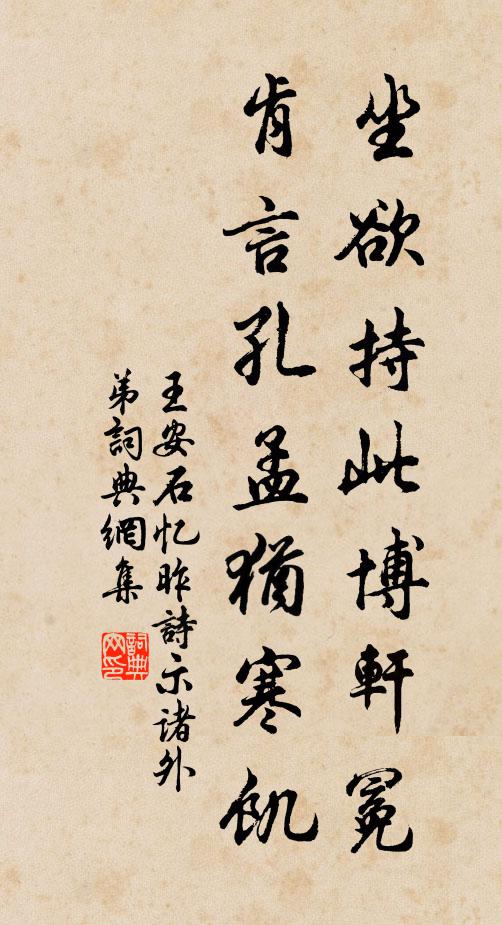 坐欲持此博軒冕
肯言孔孟猶寒飢
王安石忆昨詩示诸外
弟詞典網集
詞典
网印